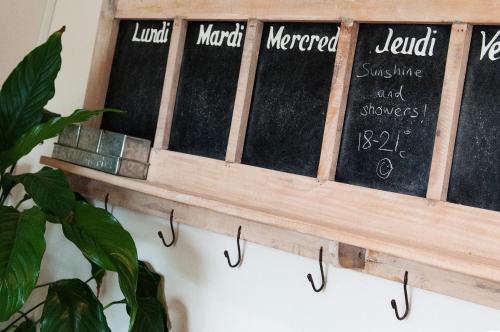 Lundi
Mardi
Mercred
Jeudi
Ve
Sunshine
and
showers!
18-21°c